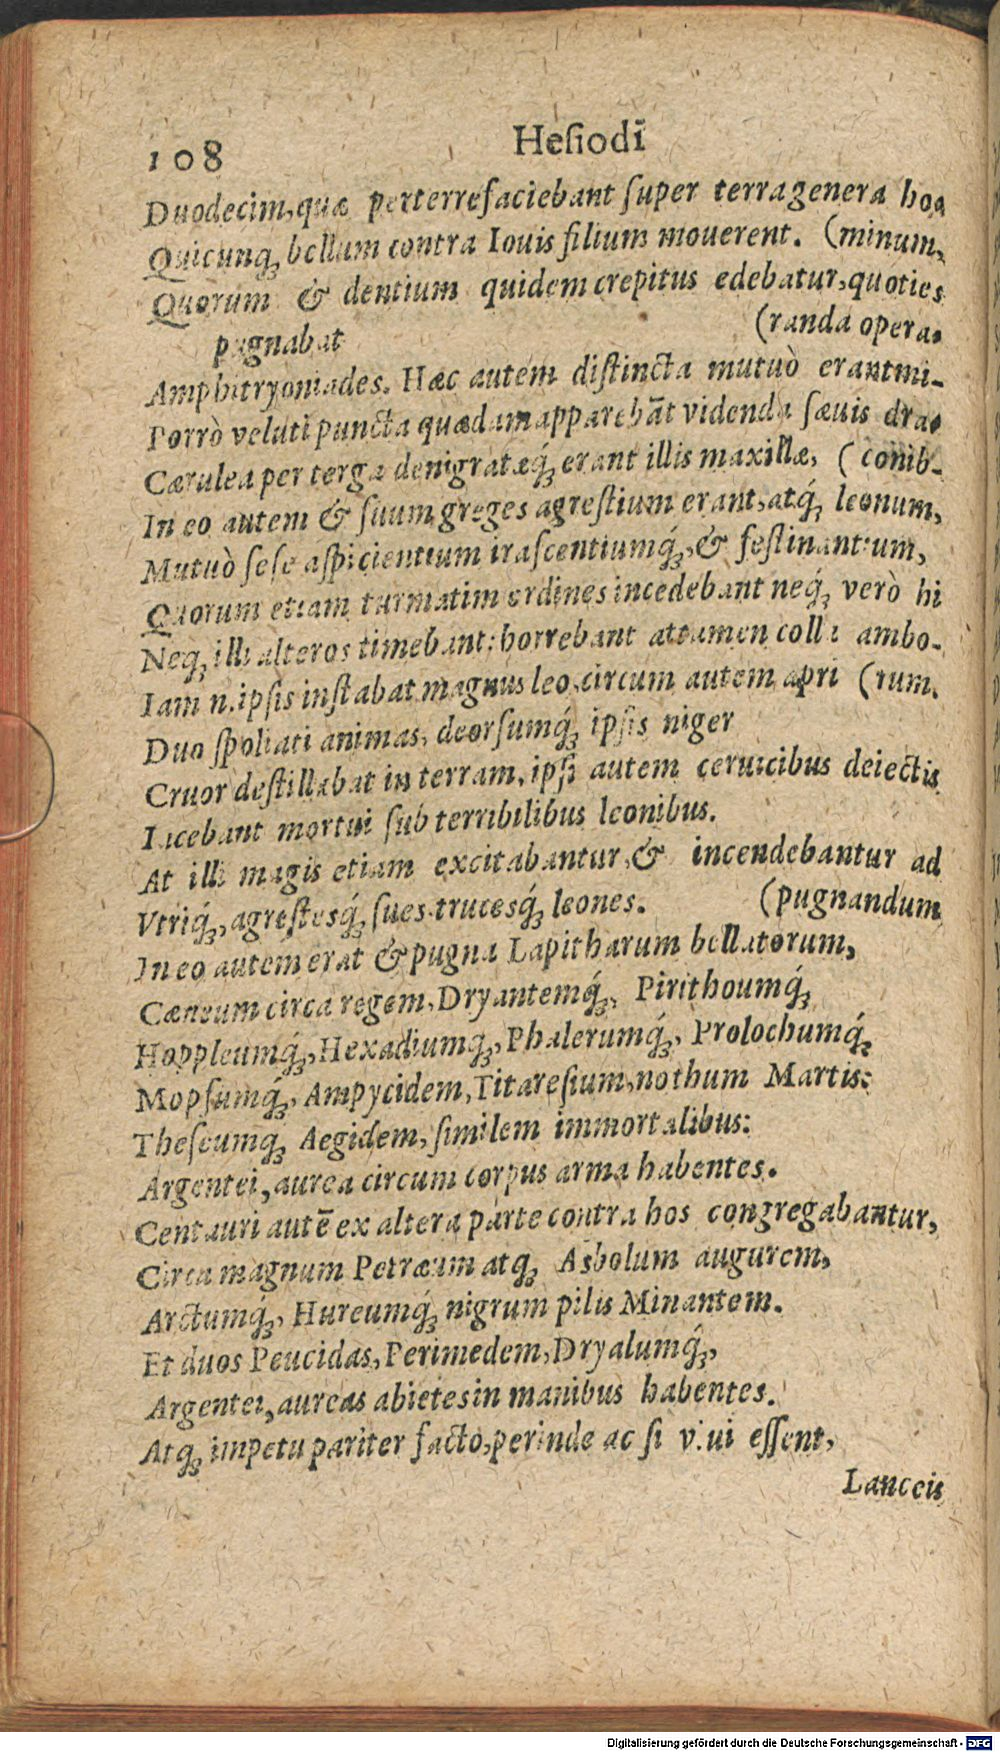 108 Hesiodi
Duodecim, quæ perterrefaciebant ſuper terra genera hoa
Quicunq́ꝫ bellum contra Iouis filium mouerent. (minum,
Quorum & dentium quidem crepitus edebatur, quoties
pugnabat (randa opera.
Amphitryoniades. Hæc autem diſtincta mutuò erant mi-
Porrò veluti puncta quædam apparebāt videnda ſæuis dra-
Cærulea per terga denigratæq́ꝫ erant illis maxillæ, ( conib-
In eo autem & ſuum greges agreſtium erant, atq́ꝫ leonum,
Mutuò ſeſe aſpicientium iraſcentiumq́ꝫ, & feſtinantium,
Quorum etiam turmatim ordines incedebant neq́ꝫ verò hi
Neqꝫ illi alteros timebant: horrebant attamen colla ambo-
Iam n. ipſis inſtabat magnus leo, circum autem apri (rum.
Duo ſpoliati animas, deorſumq́ꝫ ipſis niger
Cruor deſtillabat in terram, ipſi autem ceruicibus deiectis
Iacebant mortui ſub terribilibus leonibus.
At illi magis etiam excitabantur, & incendebantur ad
Vtriq́ꝫ, agreſtesq́ꝫ ſues trucesq́ꝫ leones. (pugnandum
In eo autem erat & pugna Lapitharum bellatorum,
Cæneum circa regem, Dryantemq́ꝫ, Pirithoumq́ꝫ
Hoppleumq́ꝫ, Hexadiumqꝫ, Phalerumq́ꝫ, Prolochumq́ꝫ
Mopſumq́ꝫ, Ampycidem, Titareſium, nothum Martis:
Theſeumqꝫ Aegidem, ſimilem immortalibus:
Argentei, aurea circum corpus arma habentes.
Centauri autē ex altera parte contra hos congregabantur,
Circa magnum Petræum atqꝫ Asbolum augurem,
Arctumq́ꝫ, Hureumq́ꝫ nigrum pilis Minantem.
Et duos Peucidas, Perimedem, Dryalumq́ꝫ,
Argentei, aureas abietes in manibus habentes.
Atqꝫ impetu pariter facto, perinde ac ſi viui eſſent,
Lanceis
Digitalisierung gefördert durch die Deutsche Forschungsgemeinschaft - DFG